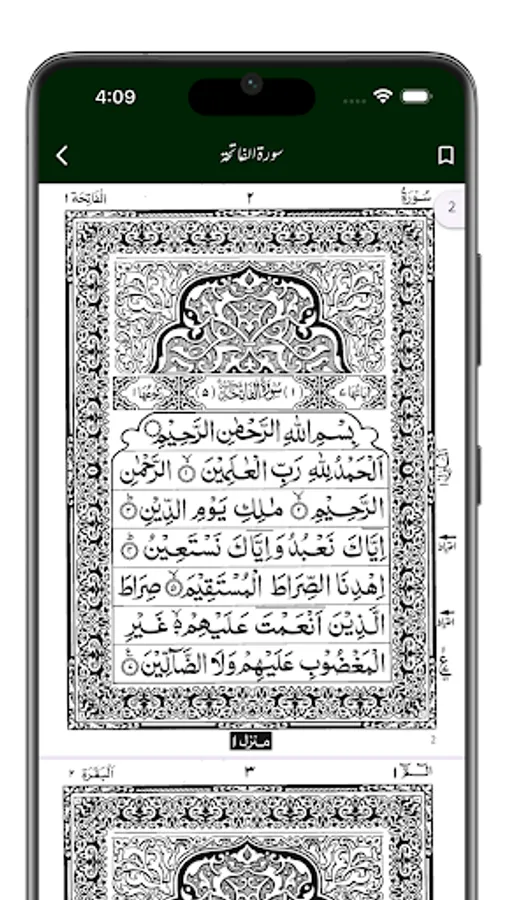 4:09
سورة الفاتحة
سُوْرَةُ ٢ اَلْفَاتِحَة ١
2
اٰيَاتُهَا ٧ (١) سُوْرَةُ الْفَاتِحَةِ (٥) رُكُوْعُهَا ١
بِسْمِ اللّٰهِ الرَّحْمٰنِ الرَّحِيْمِ
اَلْحَمْدُ لِلّٰهِ رَبِّ الْعٰلَمِيْنَ ۝١ الرَّحْمٰنِ
الرَّحِيْمِ ۝٢ مٰلِكِ يَوْمِ الدِّيْنِ ۝٣
اِيَّاكَ نَعْبُدُ وَاِيَّاكَ نَسْتَعِيْنُ ۝٤
اِهْدِنَا الصِّرَاطَ الْمُسْتَقِيْمَ ۝٥ صِرَاطَ
الَّذِيْنَ اَنْعَمْتَ عَلَيْهِمْ ۝٦ غَيْرِ
الْمَغْضُوْبِ عَلَيْهِمْ وَلَا الضَّآلِّيْنَ ۝٧
منزل ١
2
الٓمّٓ ١ ٣ اَلْبَقَرَة ٢